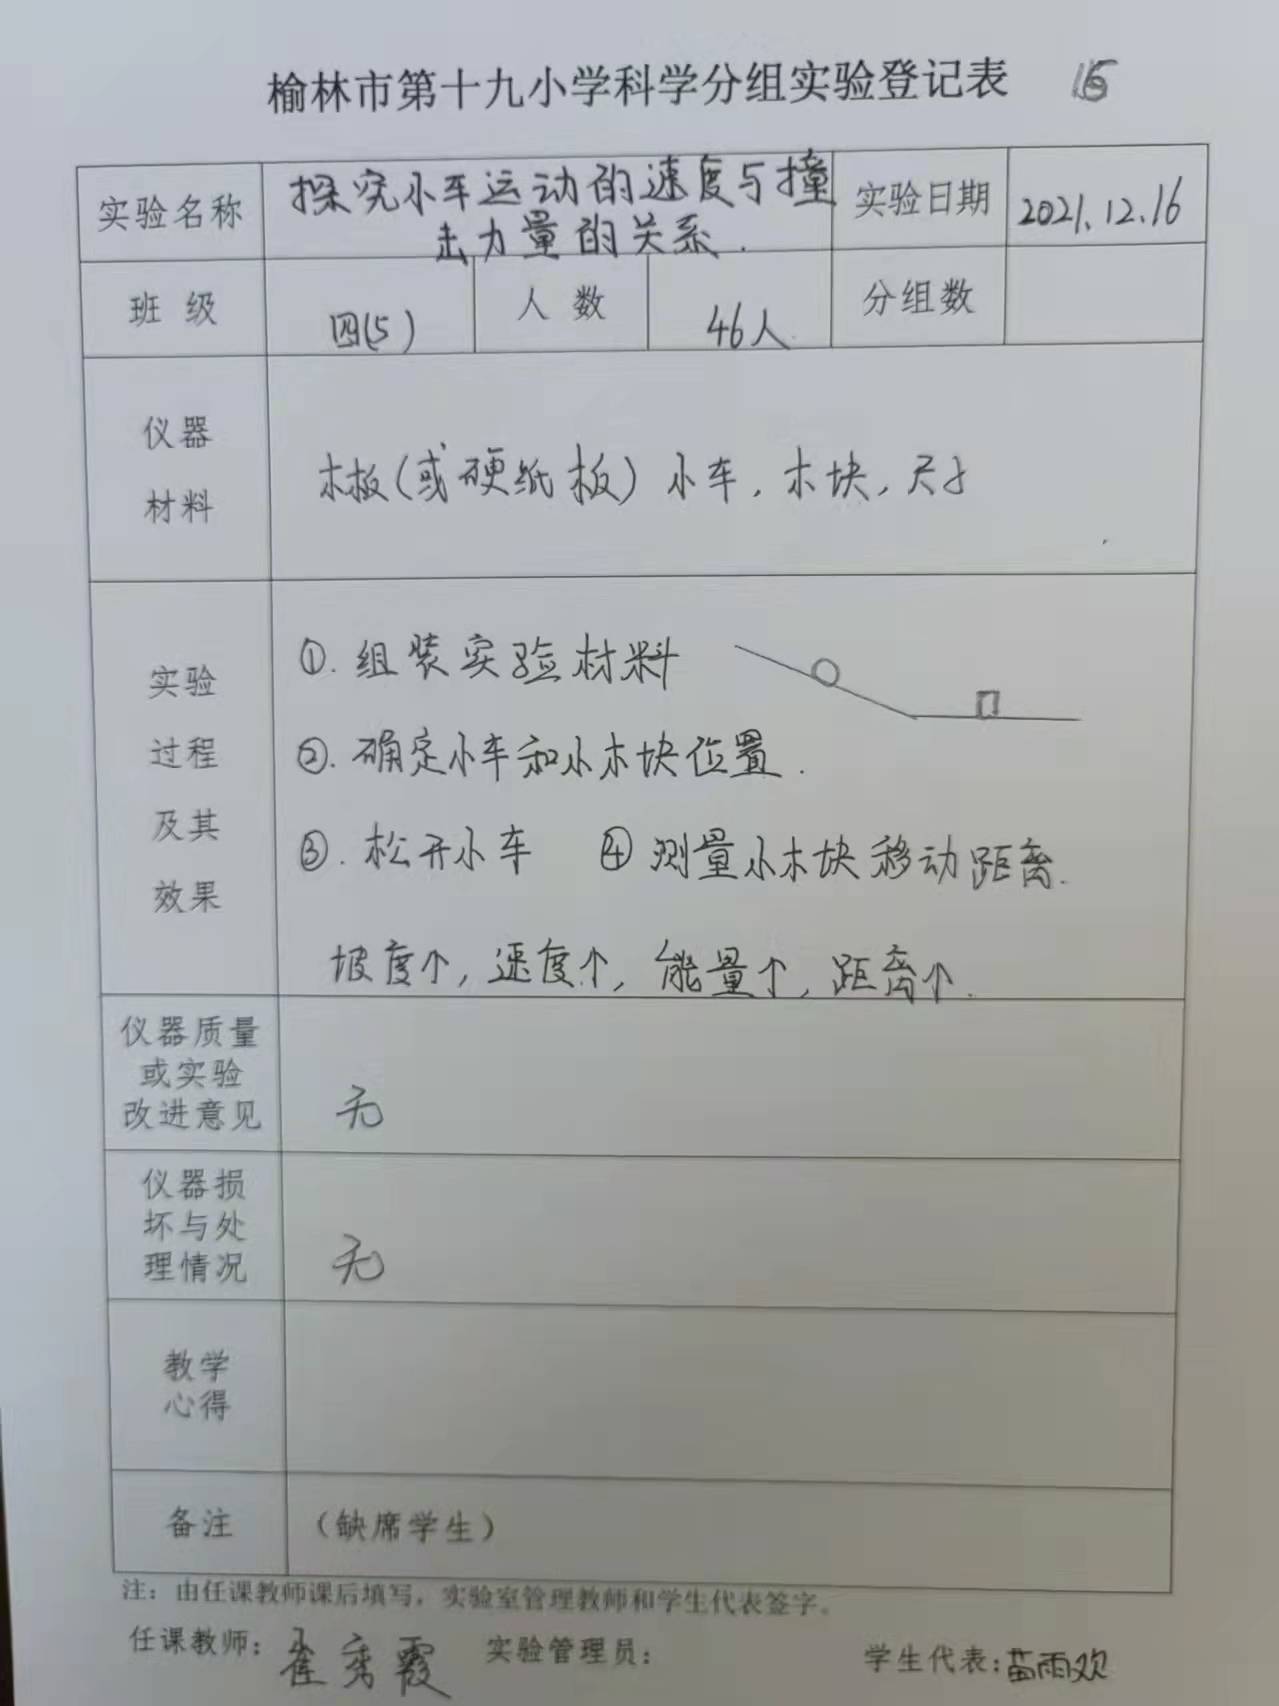 榆林市第十九小学科学分组实验登记表
实验名称 探究小车运动的速度与撞击力量的关系. 实验日期 2021.12.16
班 级 四(5) 人 数 46人 分组数
仪器
材料
木板(或硬纸板) 小车, 木块, 尺子
实验
过程
及其
效果
①. 组装实验材料
②. 确定小车和小木块位置.
③. 松开小车 ④ 测量小木块移动距离.
坡度个, 速度个, 能量个, 距离个.
仪器质量
或实验
改进意见
无
仪器损
坏与处
理情况
无
教学
心得
备注 (缺席学生)
注: 由任课教师课后填写, 实验室管理教师和学生代表签字。
任课教师: 崔秀霞 实验管理员: 学生代表: 苗雨欢